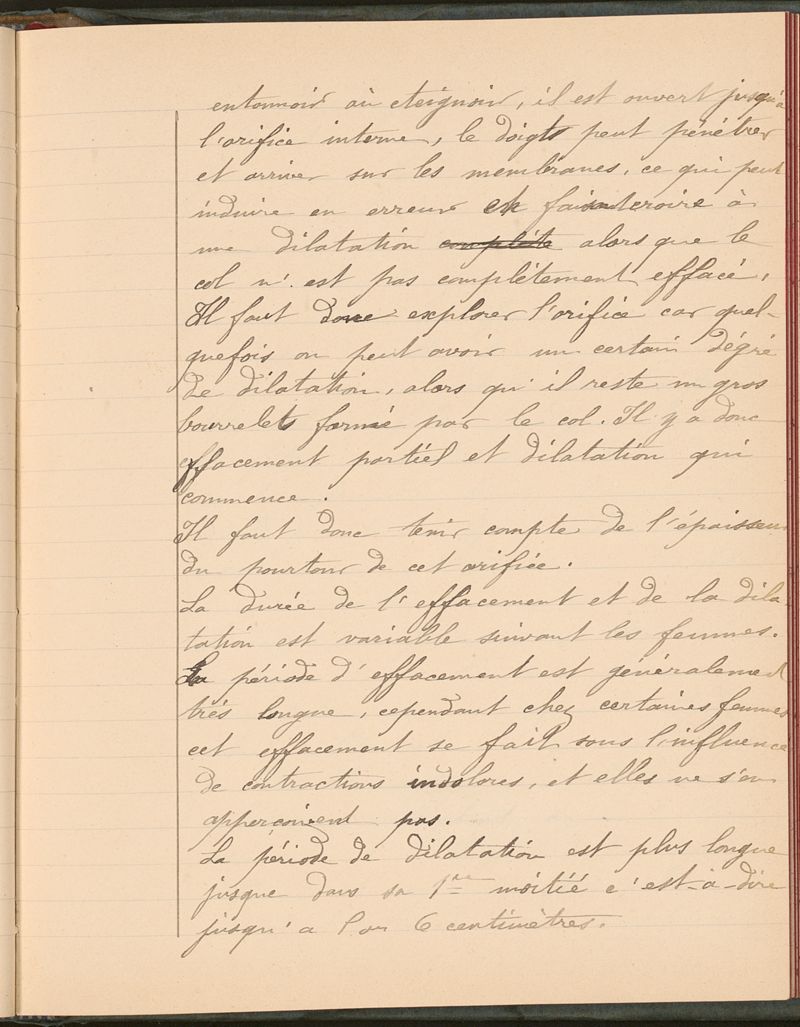 entonnoir ou eteignoir, il est ouvert jusqu'à
l'orifice interne, le doigt peut pénétrer
et arriver sur les membranes, ce qui peut
induire en erreur et faire croire à
une dilatation complète alors que le
col n'est pas complétement effacé.
Il faut donc explorer l'orifice car quel-
quefois on peut avoir un certain dégré
de dilatation, alors qu'il reste un gros
bourrelet formé par le col. Il y a donc
effacement partiel et dilatation qui
commence.
Il faut donc tenir compte de l'épaisseur
du pourtour de cet orifice.
La durée de l'effacement et de la dila-
tation est variable suivant les femmes.
La période d'effacement est généralement
très longue, cependant chez certaines femmes
cet effacement se fait sous l'influence
de contractions indolores, et elles ne s'en
apperçoivent pas.
La période de dilatation est plus longue
jusque dans sa 1ère moitié c'est-à-dire
jusqu'a ou 6 centimètres.